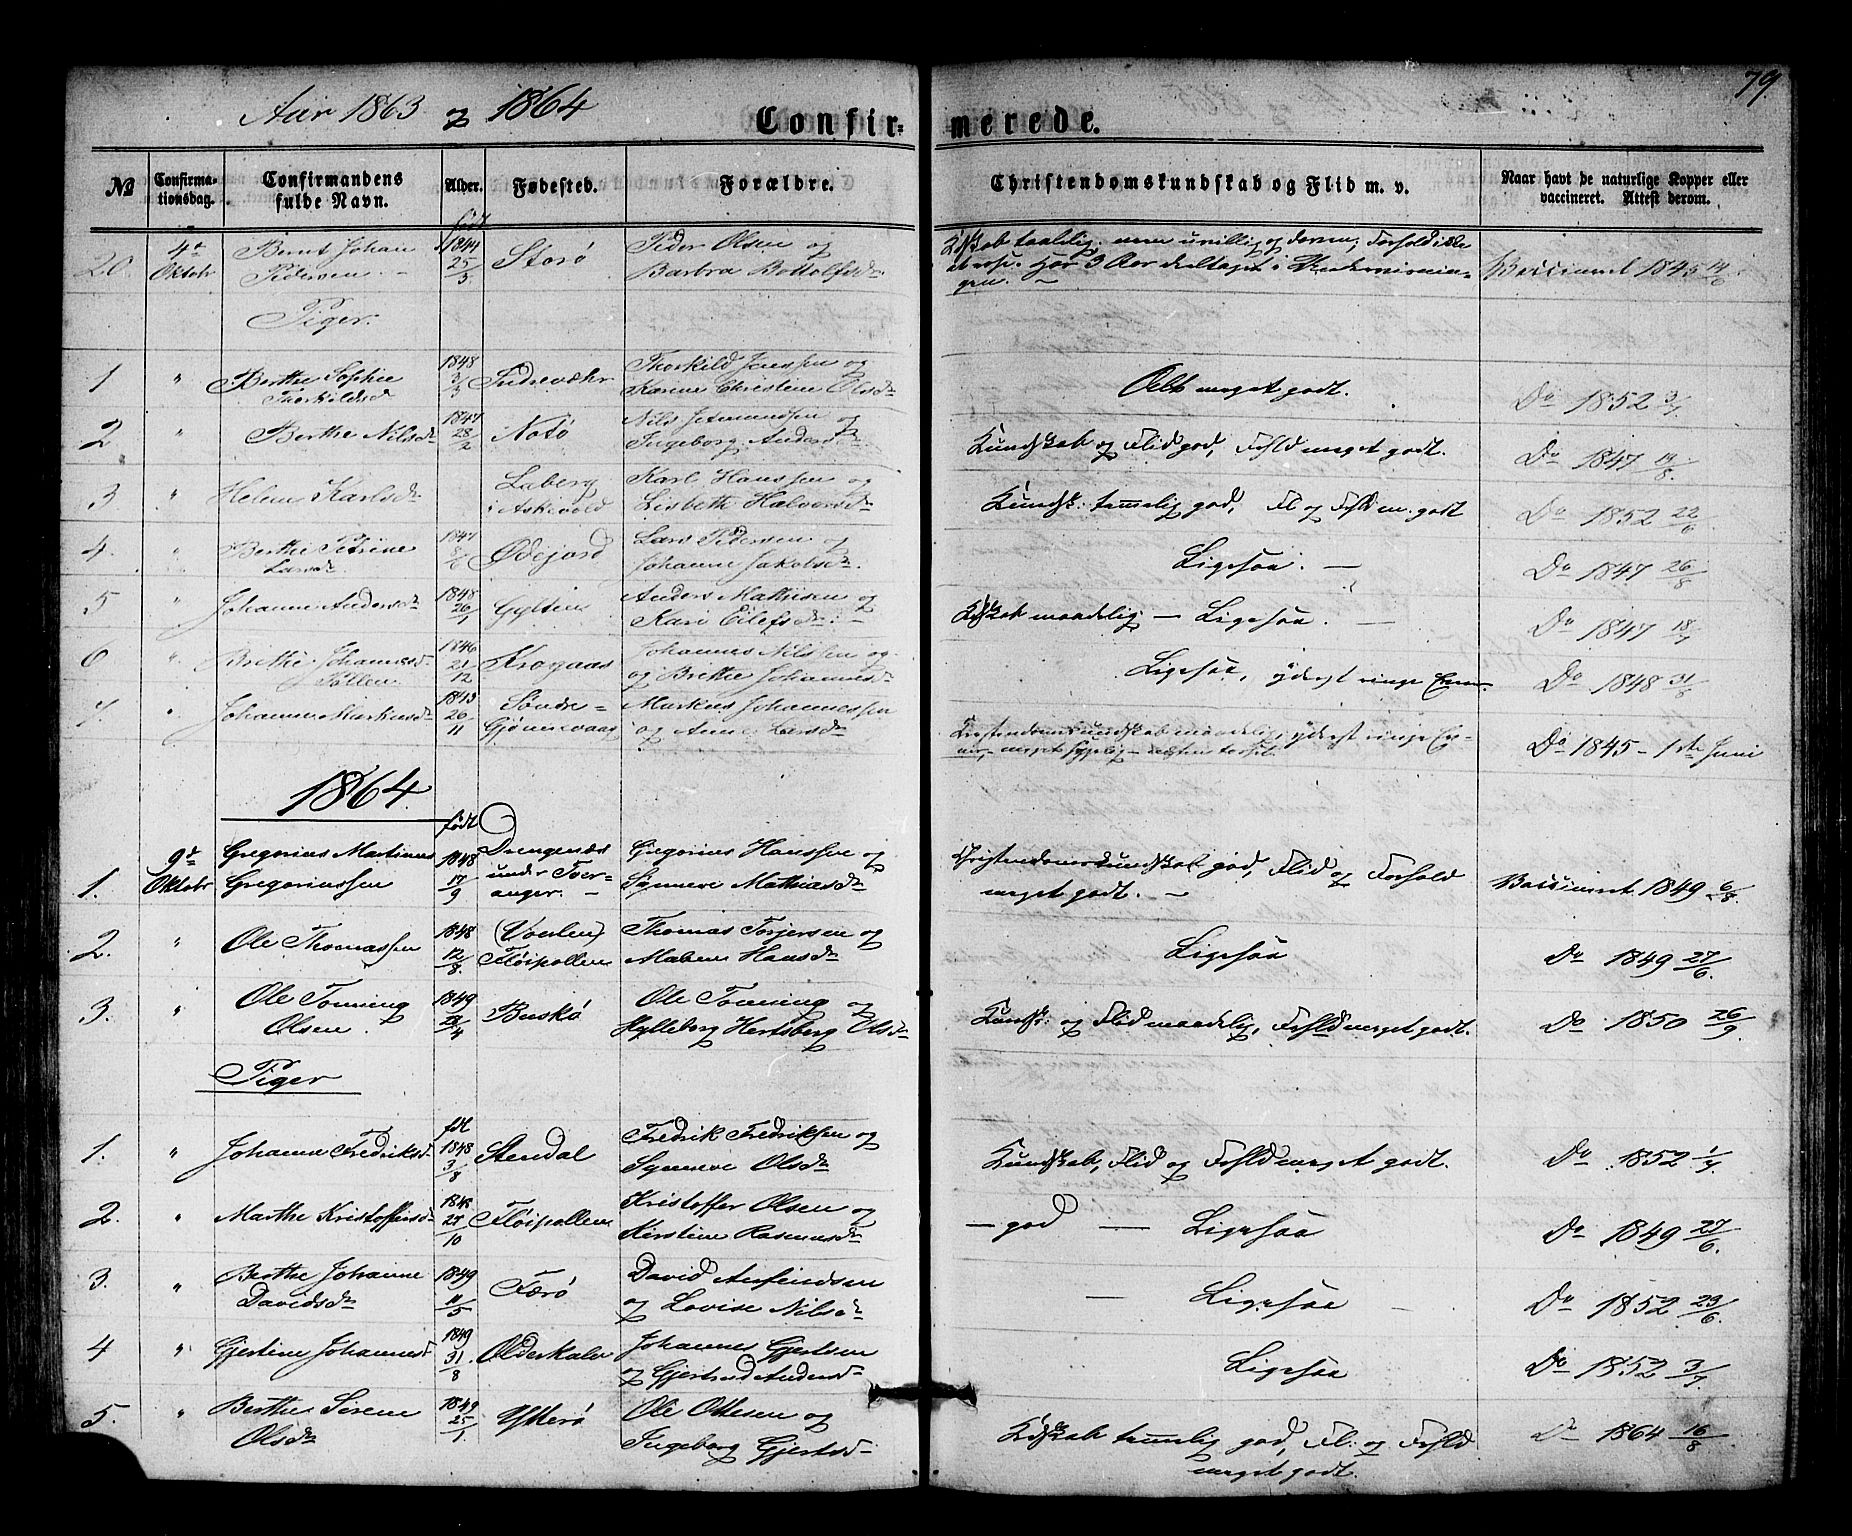 79
Aar 1863 og 1864
Confir= merede.
No
Confirma-
tionsdag.
Confirmandens
fulde Navn.
Alder.
Fødested.
Forældre.
Christendomskundskab og Flid m. v.
Naar havt de naturlige Kopper eller
vaccineret. Attest derom.
født
20. 4de Oktobr Bernt Johan Pedersen 1844 25/3 Storø Peder Olsen og Barbra Bottolfsdr. Kdskab taalelig, men uvillig og doven; Forhold ikke
Har 3 Aar deltaget i Undervisnin-
gen. Vaccineret 1845 14/6
Piger.
1 " Berthe Sophie Thorkildsd 1848 3/3 Indrevæhr Thorkild Jenssen og Karine Christine Olsdr Alt meget godt. Do 1852 3/7
2 " Berthe Nilsdr 1847 28/2 Notø Nils og Ingeborg Andersdr. Kundskab og Flid god, Fohld meget godt. Do 1847 19/8.
3 " Helene Karlsdr. Laberg i Askevold Karl Hanssen og Lisbeth Halvorsdr Kundsk. temmelig god, Fl og Fohld m. godt Do 1852 22/6
4. " Berthe Petrine Larsdr 1847 8/6 Ødejord Lars Pedersen og Johanne Jakobsdr. Ligesaa. — Do 1847 26/8
5 " Johanne Andersdr 1848 26/1 Gylten Anders Mathisen og Kari Eilefsdr. — Kdskab maadelig — Ligesaa. — Do 1847 18/7
6 " Brithe Johannesd Pollen 1846 21/12 Krogaas Johannes Nilssen og og Brithe Johannesdr Ligesaa, yderst ringe Evner. Do 1848 31/8
7. " Johanne Markusdr 1843 26/11 Søndre- Gjönnevaag Markus Johannessen og Anne Larsdr Kristendomskundskab maadelig, yderst ringe Ev-
ner, meget Do 1845 - 1ste Juni
1864.
født
1. 9de Oktobr Gregorius Martinus Gregoriussen 1848 17/9 Drengenæs under Tver- anger. — Gregorius Hanssen og Synneve Mathiasdr Christendomskundskab god, Flid og Forhold
meget godt. — Vaccineret 1849 6/8.
2. " Ole Thomassen 1848 12/8. (Vorlen) Fløipollen Thomas Torjersen og Malene Hansdr Ligesaa Do 1849 27/6.
3. " Ole Tonning Olsen. 1849 28/4 Buskø Ole Tonning og Hylleborg Hertsberg Olsdr Kundsk: og Flid maadelig, Fohld meget godt. Do 1850 26/9.
Piger
fdt
1. " Johanne Fredriksd. 1848 3/8 Stendal Fredrik Fredriksen og Synneve Olsdr Kundskab, Flid og Fohld meget godt. Do 1852 1/7.
2. " Marthe Kristoffersdr 1848 27/10 Fløipollen Kristoffer Olsen og Kirstine Rasmusdr — god — Ligesaa Do 1849 27/6.
3. " Berthe Johanne Davidsdr 1849 11/5 Færø David Amundsen og Lovise Nilsdr. — Ligesaa — Do 1852 23/6.
4 " Gjertine Johannesd 1849 31/8 Olderkalv Johannes Gjertsen og Gjertrud Andersd- Ligesaa Do 1852 3/7.
5. " Berthe Serene Olsdr 1849 25/1. Ytterø Ole Ottesen og Ingeborg Gjertsd- Kdskab temmlig god, Fl: og Fohld
meget godt. Do 1864 16/8